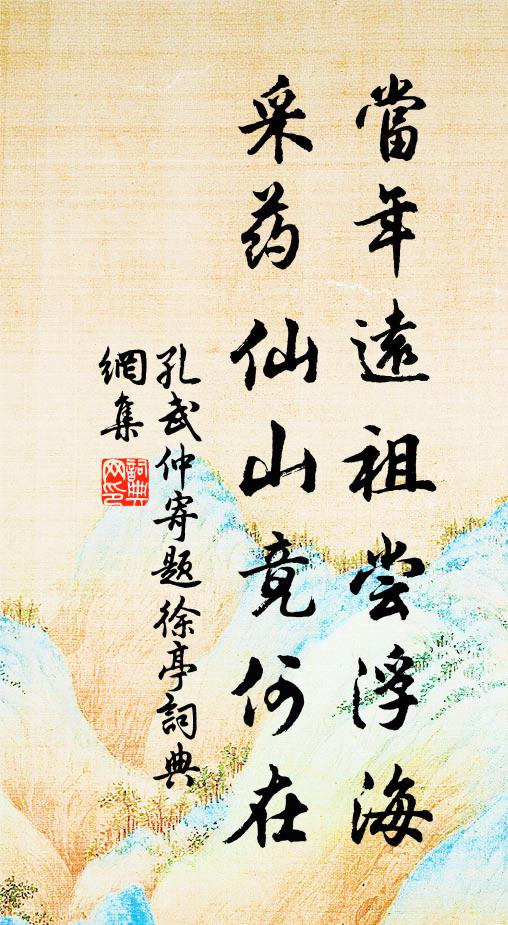 當年遠祖尝浮海
采药仙山竟何在
孔武仲寄题徐亭詞典
網集
詞典
网